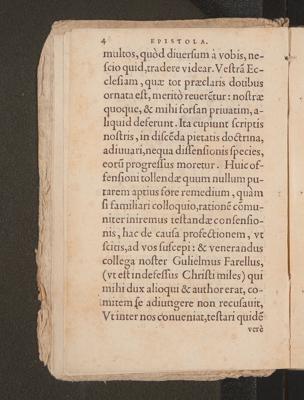 4 EPISTOLA.
multos, quòd diuersum à vobis, ne-
scio quid, tradere videar. Vestrā Ec-
clesiam, quæ tot præclaris dotibus
ornata est, meritò reuerētur: nostræ
quoque, & mihi forsan priuatim, a-
liquid deferunt. Ita cupiunt scriptis
nostris, in discēda pietatis doctrina,
adiuuari, nequa dissensionis species,
eorū progressus moretur. Huic of-
fensioni tollendæ quum nullum pu-
tarem aptius fore remedium, quàm
si familiari colloquio, rationē cōmu-
niter iniremus testandæ consensio-
nis, hac de causa profectionem, vt
scitis, ad vos suscepi: & venerandus
collega noster Gulielmus Farellus,
(vt est indefessus Christi miles) qui
mihi dux alioqui & author erat, co-
mitem se adiungere non recusauit.
Vt inter nos conueniat, testari quidē
verè